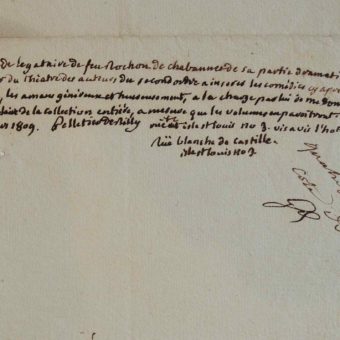 de legataire de feu Rochon de chabannes de sa partie dramati
du théatre des auteurs du second ordre a inserer les comédies cy apre
les amans généreux et heureusement, a la charge par lui de me don
de la collection entière, a mesure que les volumes en paroitront
1809. Pelletier de Rilly isle st louis no 3. vis a vis l'hot
Rüe blanche de castille
isle st louis no 3